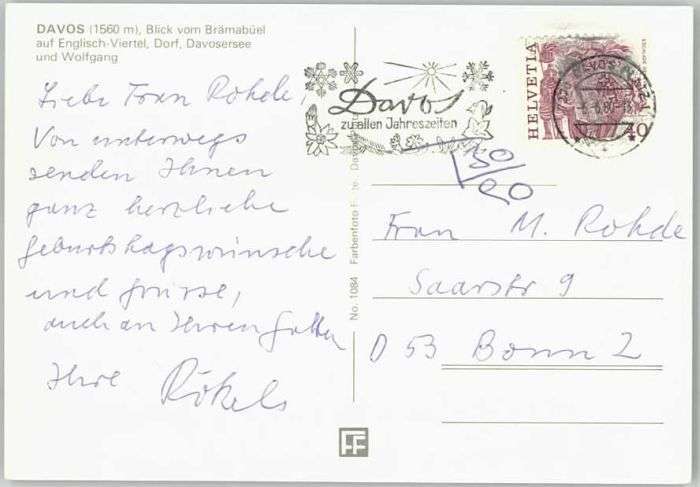 DAVOS (1560 m), Blick vom Brämabüel
auf Englisch-Viertel, Dorf, Davosersee
und Wolfgang
Liebe Frau Rohde,
Von unterwegs
senden Ihnen
ganz herzliche
Geburtstagswünsche
und Grüsse,
auch an Ihren Gatten
Ihre Rökels
No. 1084 Farbenfoto
Davos
zu allen Jahreszeiten
HELVETIA
40
30/20
Frau M. Rohde
Saarstr 9
D 53 Bonn 2
FF